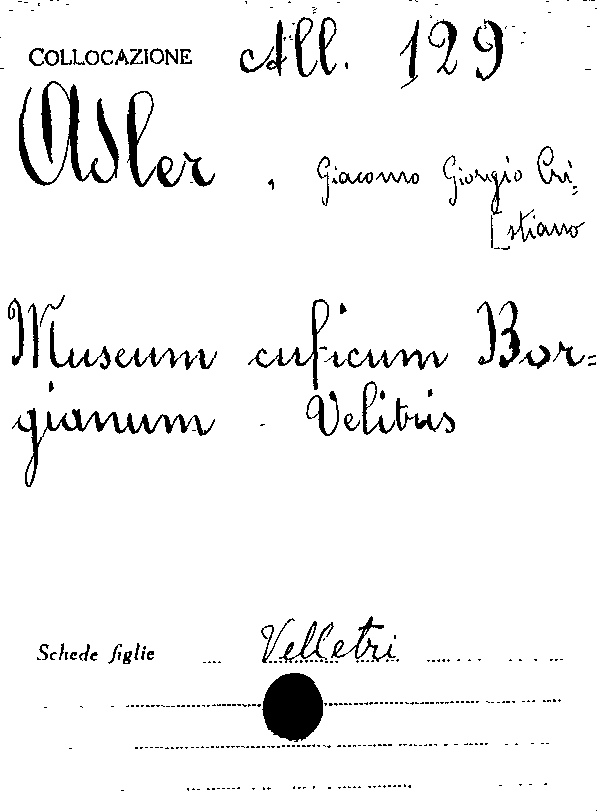 COLLOCAZIONE All. 129
Adler, Giacomo Giorgio Cri=
[stiano
Museum cuficum Bor=
gianum - Velitris
Schede figlie Velletri